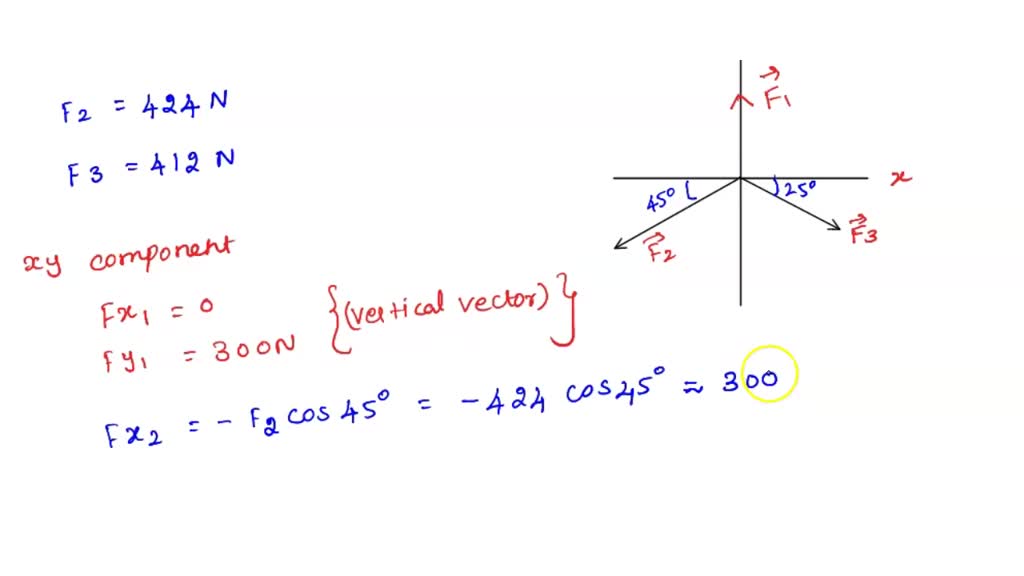 F2 = 424 N
F3 = 412 N
xy component
Fx1 = 0
Fy1 = 300N {(vertical vector)}
Fx2 = - F2 cos 45° = - 424 cos 45° ≈ 300
F1
x
45°
25°
F2
F3